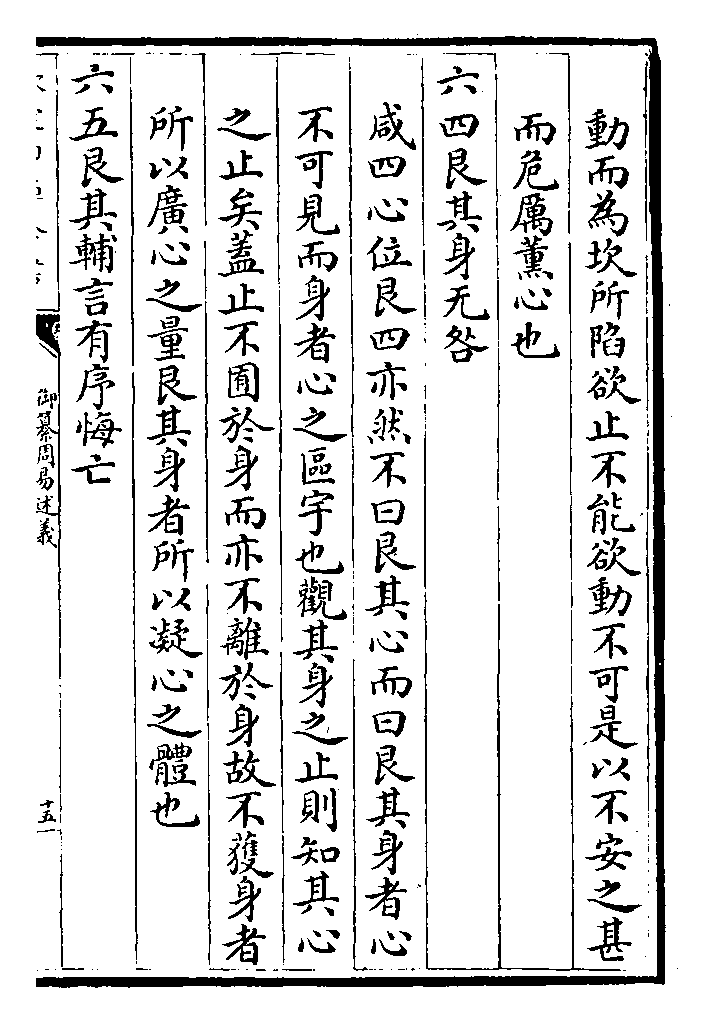 動而為坎所陷欲止不能欲動不可是以不安之甚
而危厲薰心也
六四艮其身无咎
咸四心位艮四亦然不曰艮其心而曰艮其身者心
不可見而身者心之區宇也觀其身之止則知其心
之止矣蓋止不囿於身而亦不離於身故不獲身者
所以廣心之量艮其身者所以凝心之體也
六五艮其輔言有序悔亡
御纂周易述義
十五